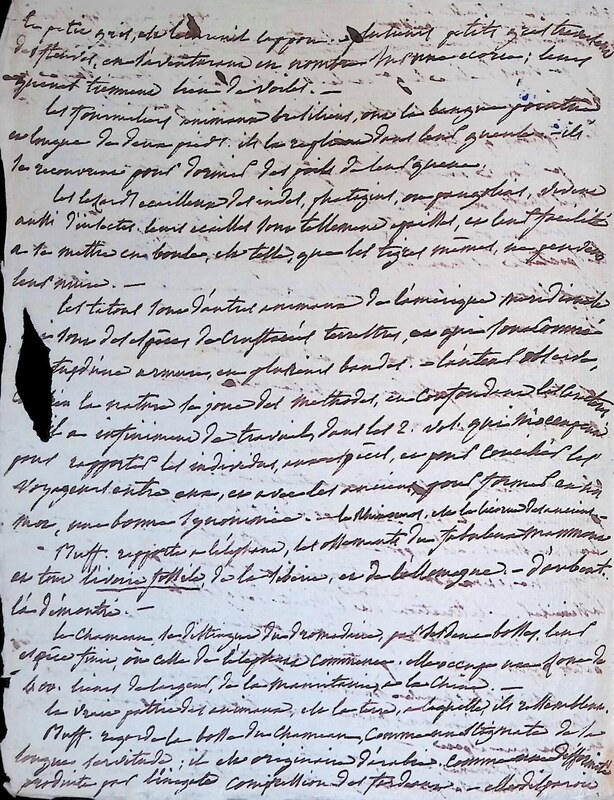 Le petit gris, est l'écureuil lappon. plusieurs petits gris traversent
des fleuves, en s'aventurant en nombre sur une écorce; leurs
queues tiennent lieu de voiles. —
Les fourmiliers animaux brésiliens, ont la langue pointue
et longue de deux pieds. ils la replient dans leur gueule — ils
se recouvrent pour dormir des poils de leur queue.
Les lézards écailleux des indes, phatagins, ou pangolins, vivent
aussi d'insectes. leurs écailles sont tellement aiguilles, et leur facilité
à se mettre en boule, est telle, que les tigres mêmes, ne peuvent
leur nuire. —
Les tatous sont d'autres animaux de l'amérique méridionale
sont des espèces de crustacés terrestres, et qui sont comme
d'une armure, en plusieurs bandes. — l'auteur observe,
la nature se joue des méthodes, en confondant
il a infiniment de travail dans les 2. vol. qui m'occupent
pour rapporter les individus, aux espèces, et pour concilier les
voyageurs entre eux, et avec les anciens, pour former en un
mot, une bonne synonimie. — le rhinoceros, est la licorne des anciens —
— Buff. rapporte à l'éléphant, les ossements du fabuleux mammout
et tout l'ivoire fossile de la sibérie, et de l'allemagne — d'aubent.
l'a démontré. —
Le chameau se distingue du dromadaire, par deux bosses, leur
espèce finit où celle de l'éléphant commence. elle occupe une zone de
400. lieues de largeur, de la mauritanie, à la Chine. —
la vraie patrie des animaux, est la terre, à laquelle ils ressemblent.
Buff. regarde la bosse du chameau, comme un stigmate de sa
longue servitude; il est originaire d'arabie, comme une difformité
produite par l'inégale compression des fardeaux. — elle disparoit